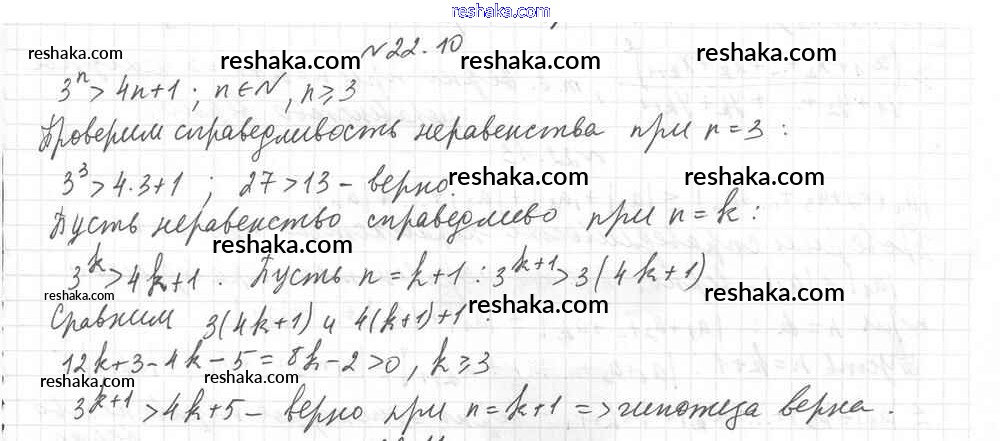 reshaka.com
reshaka.com reshaka.com reshaka.com
№22.10
3^n > 4n+1 ; n∈N, n≥3
reshaka.com reshaka.com
Проверим справедливость неравенства при n=3:
3^3 > 4·3+1 ; 27 > 13 – верно.
reshaka.com reshaka.com
Пусть неравенство справедливо при n=k:
reshaka.com
3^k > 4k+1. Пусть n=k+1: 3^{k+1} > 3(4k+1)
reshaka.com reshaka.com reshaka.com
Сравним 3(4k+1) и 4(k+1)+1:
12k+3-4k-5=8k-2>0, k≥3
reshaka.com reshaka.com
3^{k+1} > 4k+5 – верно при n=k+1 => гипотеза верна.